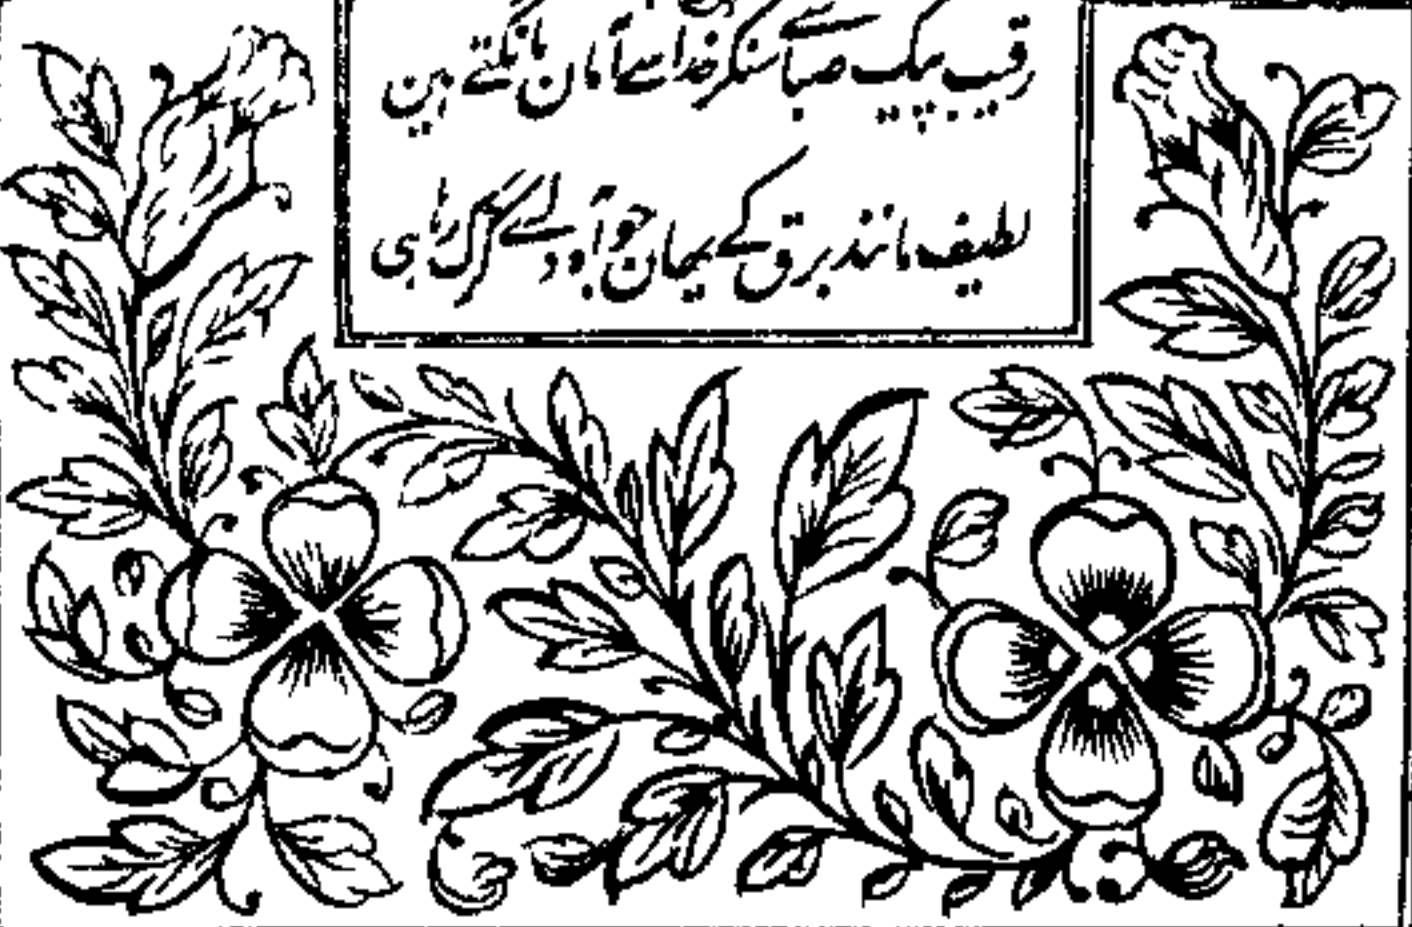 رقیب پیک صبا سے سنکر خدا سے امان مانگتے ہین
لطیف مانند برق کے یھان جو رہا ہی